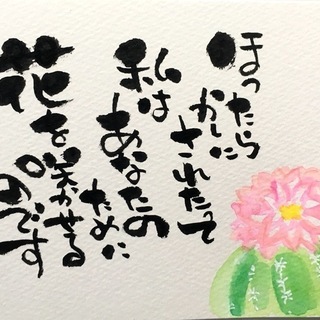 ほったら
かしに
されたって
私は
あなたの
ために
花を咲かせる
のです